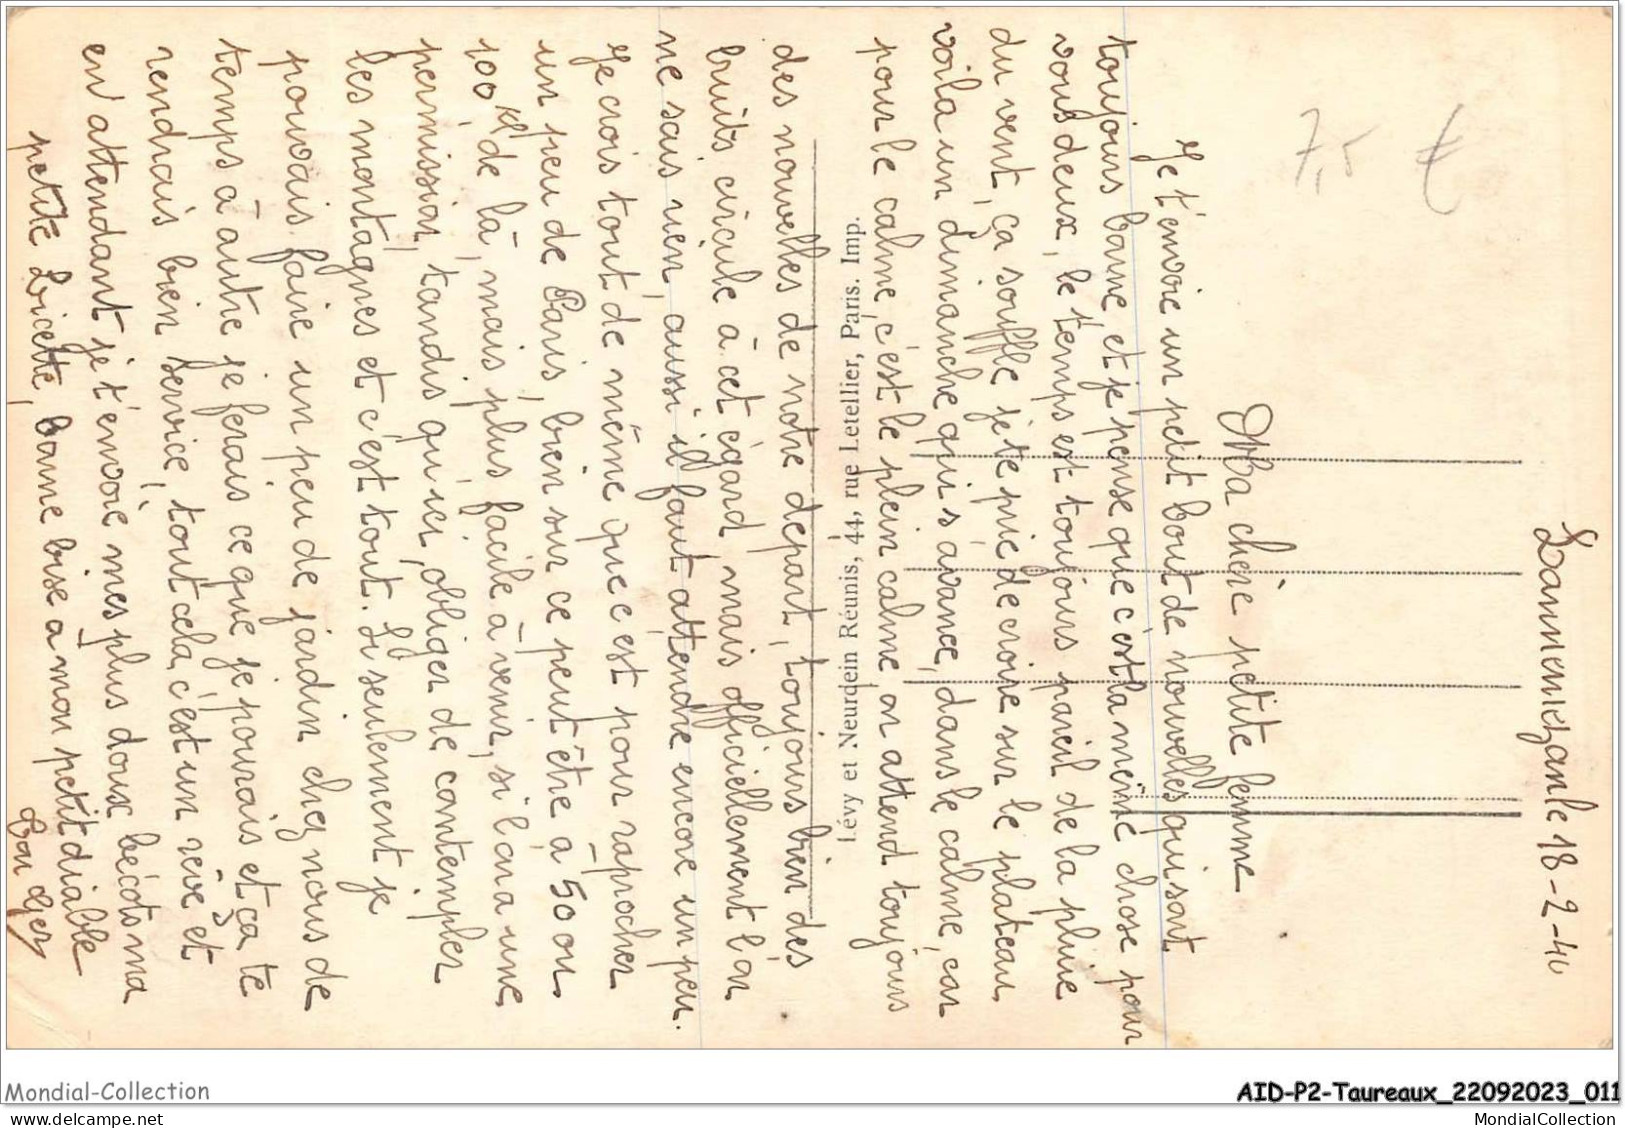 Lannemezan le 18-2-40
Ma chère petite femme
Je t'envoie un petit bout de nouvelles qui sont
toujours bonne et je pense que c'est la même chose pour
vous deux, le temps est toujours pareil de la pluie
du vent, ça souffle je te prie de croire sur le plateau,
voila un dimanche qui s'avance, dans le calme, car
pour le calme, c'est le plein calme, on attend toujours
des nouvelles de notre départ, toujours bien des
bruits circule à cet égard, mais officiellement l'on
ne sais rien, aussi il faut attendre encore un peu.
Je crois tout de même que c'est pour raprocher
un peu de Paris, bien sur ce peut être à 50 ou
100 km de là, mais plus facile à venir, si l'on a une
permission, tandis qu'ici, obliger de contempler
les montagnes et c'est tout. Si seulement je
pouvais faire un peu de jardin chez nous de
temps à autre je ferais ce que je pourais et ça te
rendrais bien service, tout cela c'est un rêve et
en attendant je t'envoie mes plus doux bécots ma
petite Licette, bonne bise à mon petit diable
Ton Ger
7,5 €
Lévy et Neurdein Réunis, 44, rue Letellier, Paris. Imp.
Mondial-Collection
AID-P2-Taureaux_22092023_011
MondialCollection
www.delcampe.net